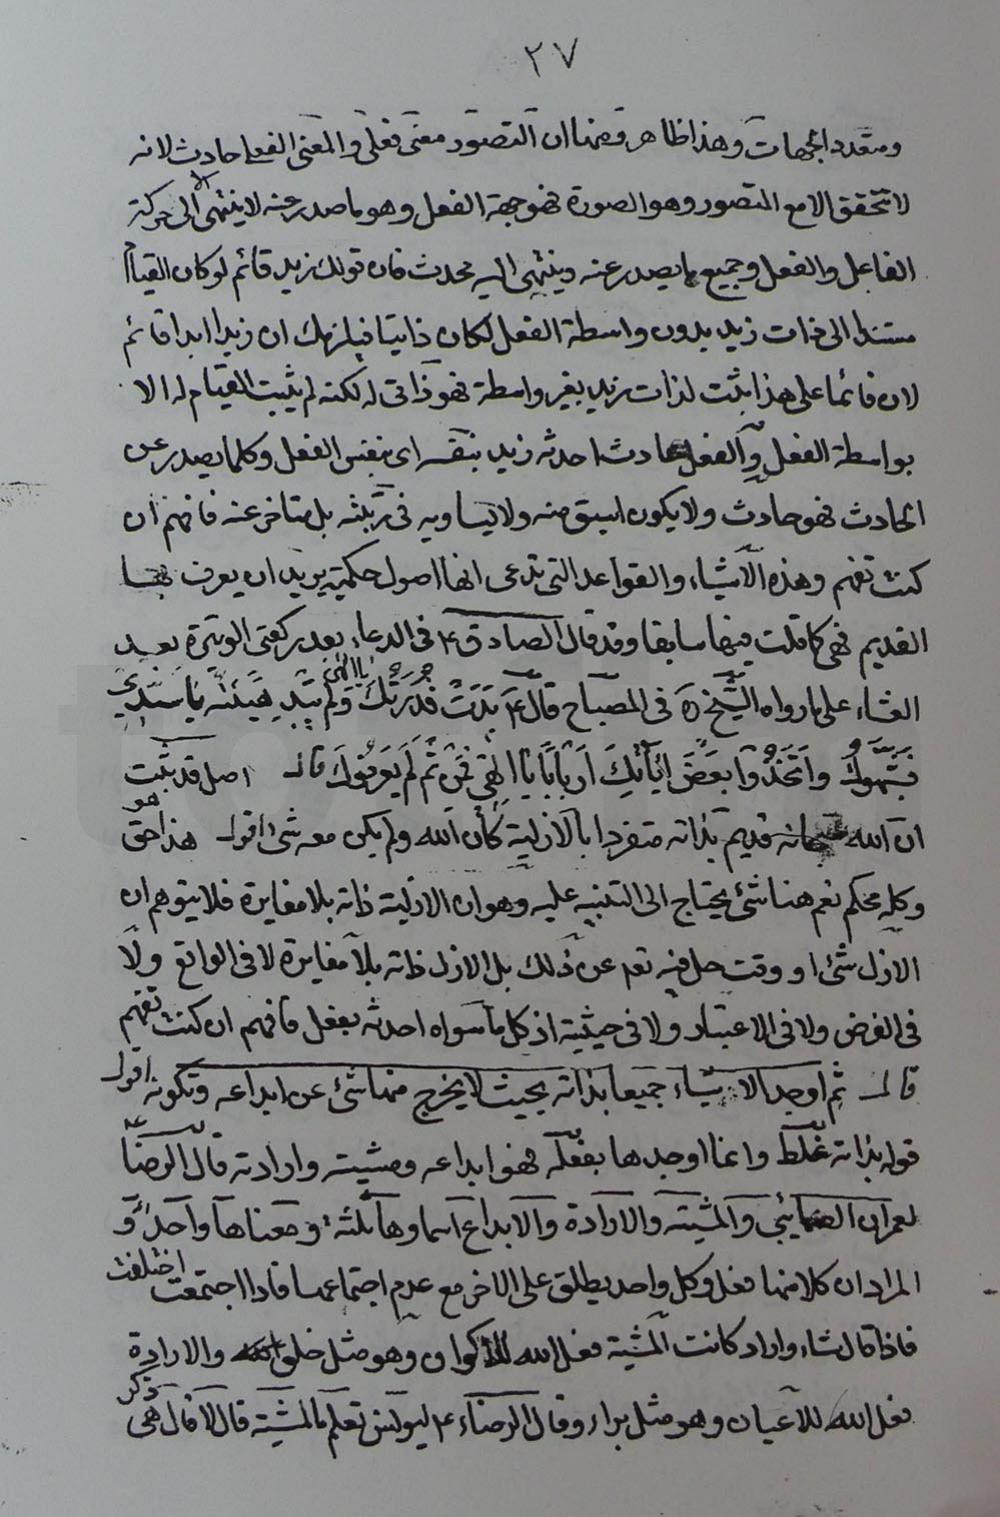 ٢٧
ومتعدد الجهات وهذا ظاهر ومنها ان التصور معنى فعلى والمعنى الفعلى حادث لانه
لا تتحقق الا مع المتصور وهو الصورة فهو جهة الفعل وهو ما صدر عنه لا ينتهى الا الى حركة
الفاعل والفعل وجميع ما يصدر عنه وينتهى اليه محدث فان قولك زيد قائم لو كان القيام
مستندا الى ذات زيد بدون واسطة الفعل لكان ذاتيا فيلزمك ان زيدا ابدا قائم
لان قائما على هذا يثبت لذات زيد بغير واسطة فهو ذاتى له لكنه لم يثبت القيام له الا
بواسطة الفعل والفعل حادث احدثه زيد بنفسه اى بنفس الفعل وكلما يصدر عن
الحادث فهو حادث ولا يكون اسبق منه ولا يساويه فى رتبته بل متاخر عنه فافهم ان
كنت تفهم وهذه الاشياء والقواعد التى تدعى انها اصول حكمية يريد ان يعرف بها
القديم فهى كما قلت فيها سابقا وقد قال الصادق ع فى الدعاء بعد ركعتى الوتيرة بعد
العشاء على ما رواه الشيخ ره فى المصباح قال ع بَدَتْ قُدْرَتُكَ يا الهى وَلَمْ تَبْدُ هَيْئَةٌ يا سَيِّدى
فَشَبَّهُوكَ وَاتَّخَذُوا بَعْضَ اياتِكَ اَرْباباً يا اِلهى فَمِنْ ثَمَّ لَمْ يَعْرِفُوكَ قال اصل قد ثبت
ان الله سبحانه قديم بذاته متفردا بالازلية كان الله ولم يكن معه شئ اقول هذا هو حق
وكله محكم نعم هنا شئ يحتاج الى التنبيه عليه وهو ان الازلية ذاته بلا مغايرة فلا يتوهم ان
الازل شئ او وقت حل فيه تعه عن ذلك بل الازل ذاته بلا مغايرة لا فى الواقع ولا
فى الفرض ولا فى الاعتبار ولا فى حيثية اذ كل ما سواه احدثه بفعله فافهم ان كنت تفهم
قال ثم اوجد الاشياء جميعا بذاته بحيث لا يخرج منها شئ عن ابداعه وتكونه اقول
قوله بذاته غلط وانما اوجدها بفعله فهو ابداعه ومشيته وارادته قال الرضا ع
لعمران الصابئى والمشية والارادة والابداع اسماوها ثلثة ومعناها واحد و
المراد ان كلا منها فعل وكل واحد يطلق على الاخر مع عدم اجتماعها فاذا اجتمعت اختلفت
فاذا قال شاء واراد كانت المشية فعل الله للاكوان وهو مثل خلق والارادة
فعل الله للاعيان وهو مثل براء وقال الرضاء ع ليونس تعلم ما المشية قال لا قال هى ذكر